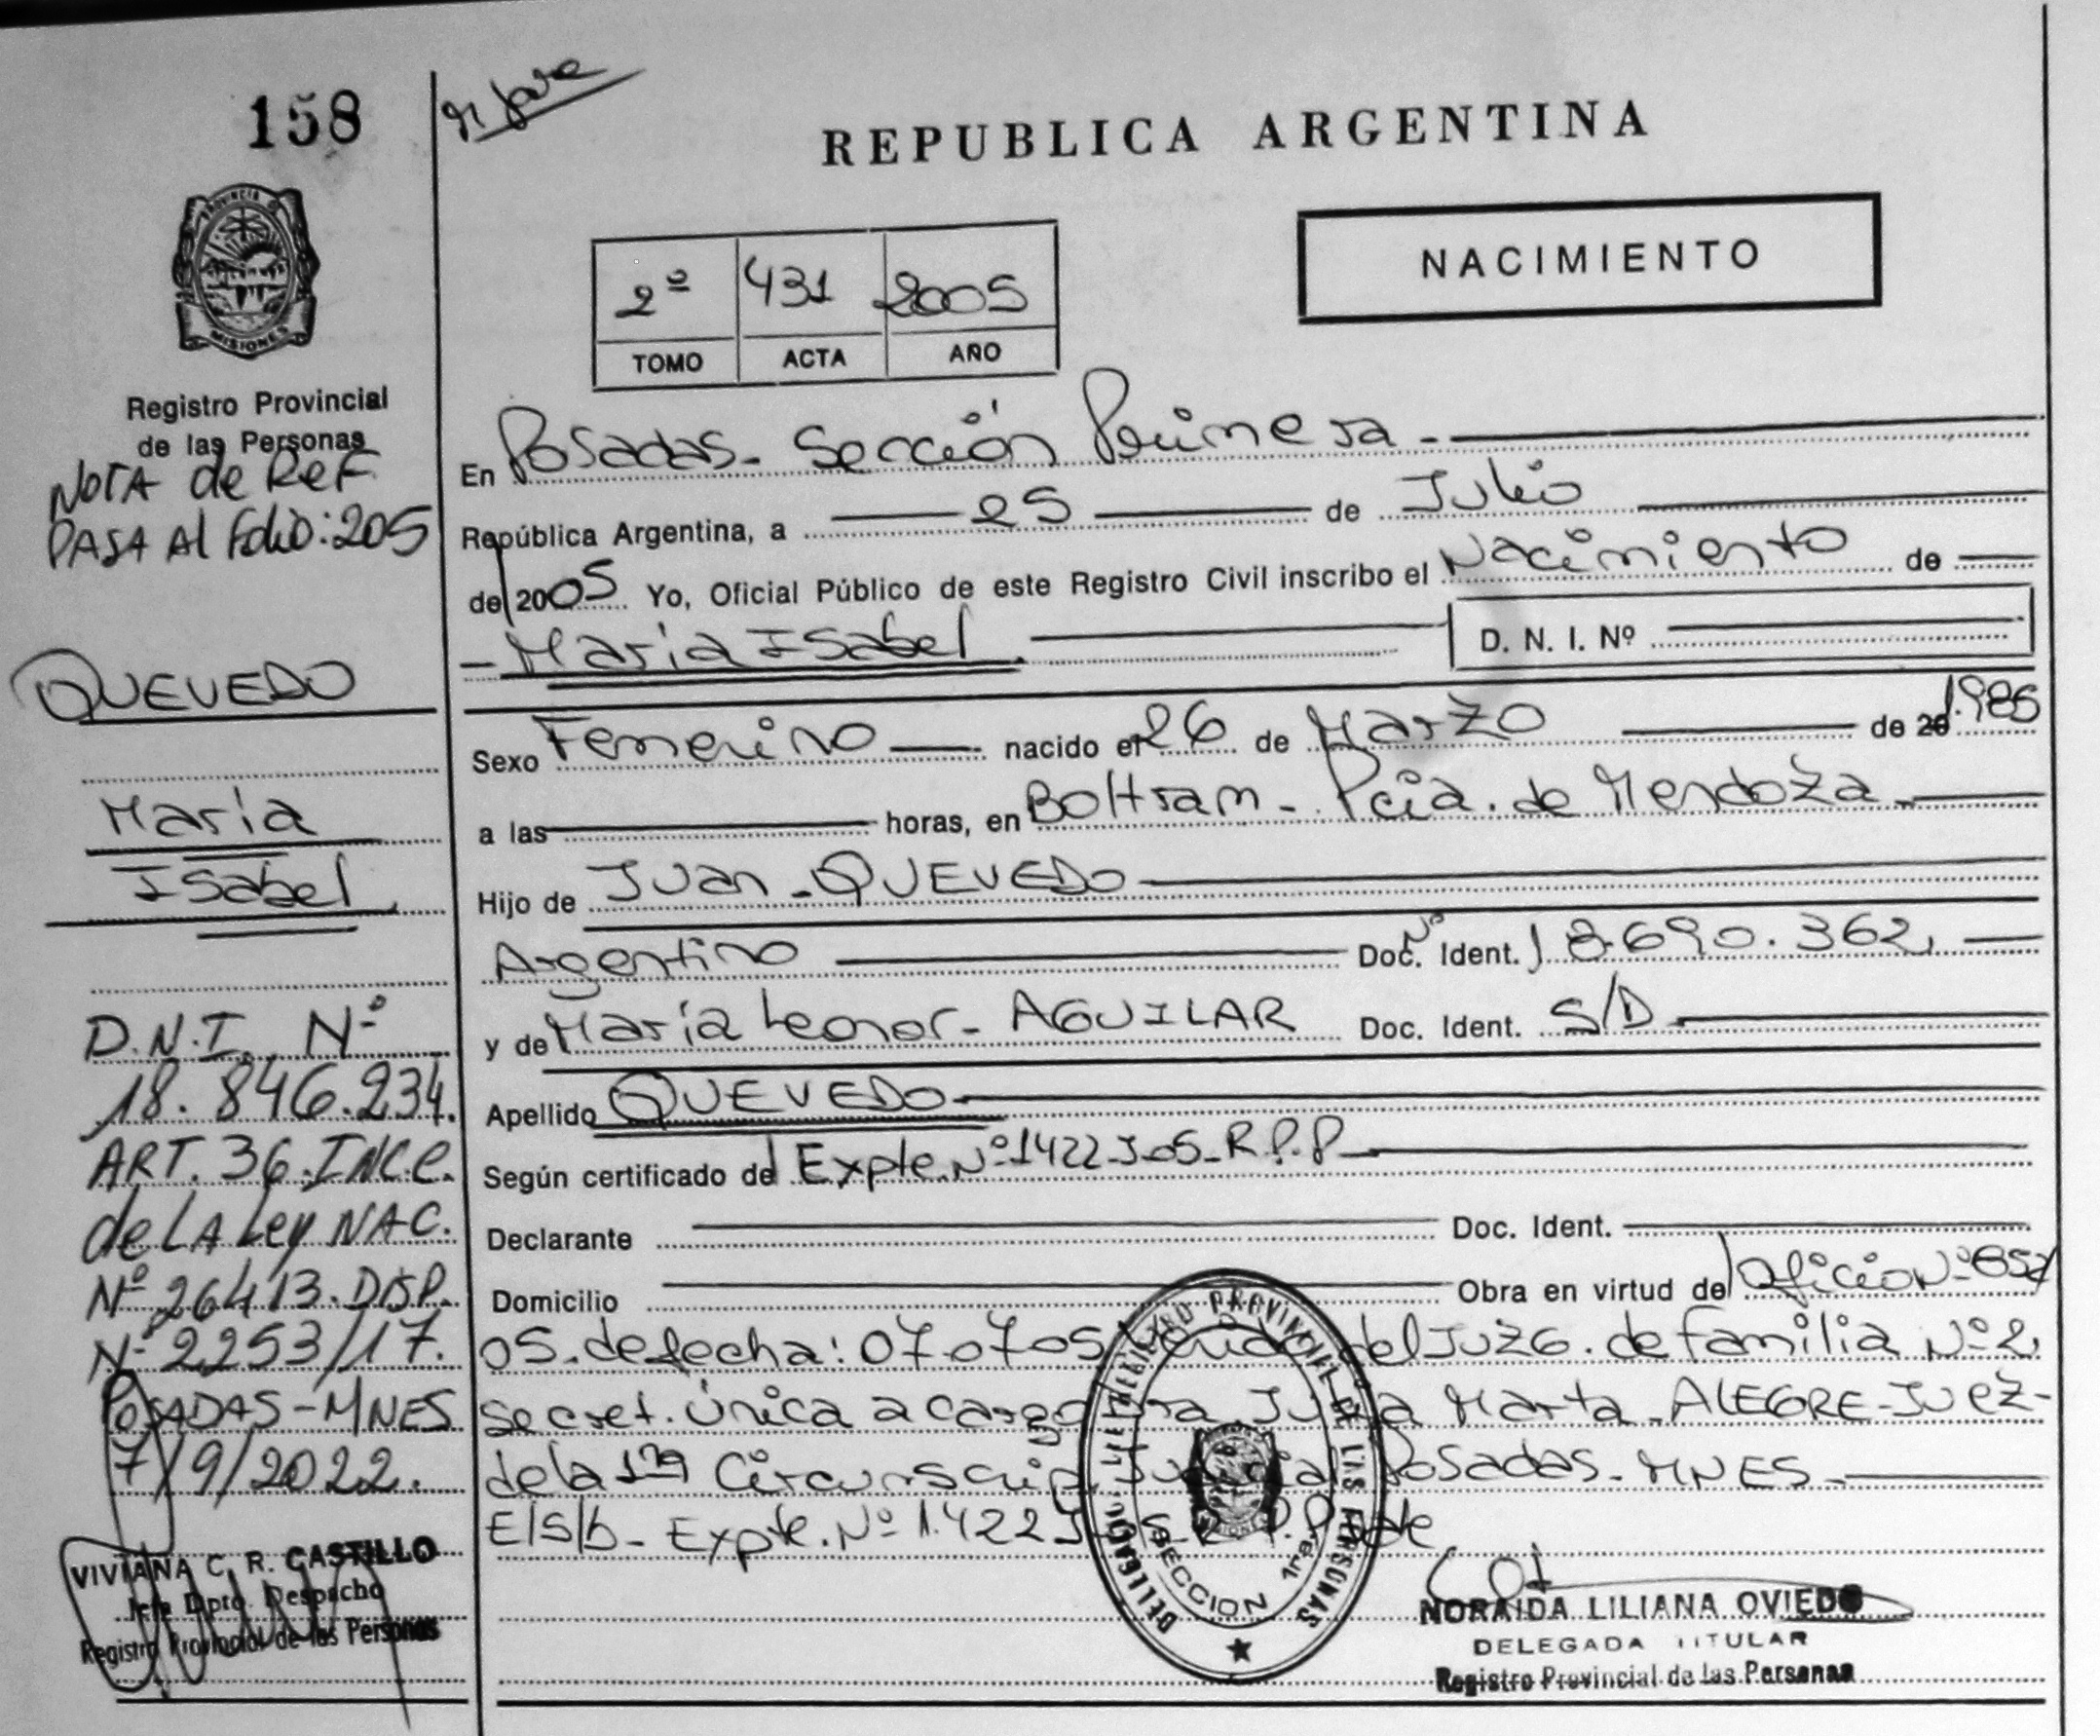 158
REPUBLICA ARGENTINA
PROVINCIA DE
MISIONES
NACIMIENTO
2º 431 2005
TOMO ACTA AÑO
Registro Provincial
de las Personas
NOTA de REF
PASA Al Folio: 205
QUEVEDO
María
Isabel
D.N.I. Nº
18.846.234.
ART. 36. INC. C.
de LA Ley NAC.
Nº 26413. DISP.
Nº 2253/17.
POSADAS - MNES
7/9/2022.
VIVIANA C. R. CASTILLO
Jefe Dpto. Despacho
Registro Provincial de las Personas
En Posadas - Sección Primera -
República Argentina, a 25 de Julio
de 2005 Yo, Oficial Público de este Registro Civil inscribo el Nacimiento de
- María Isabel. D. N. I. Nº
Sexo Femenino nacido el 26 de Marzo de 20 1.985
a las horas, en Boltram - Pcia. de Mendoza -
Hijo de Juan - QUEVEDO
Argentino Doc. Nº Ident. 8.690.362
y de María Leonor - AGUILAR Doc. Ident. S/D
Apellido QUEVEDO
Según certificado de Expte. Nº 1422-J-05-R.P.P
Declarante Doc. Ident.
Domicilio Obra en virtud de Oficio Nº 857
05. de fecha: 07.07.05 del Juzg. de familia Nº 2
Secret. Única a cargo Dra. Julia Marta - ALEGRE - Juez -
de la 1ra Circunscrip. Judicial Posadas - MNES -
E/S/b - Expte. Nº 1.422 J
REGISTRO PROVINCIAL DE LAS PERSONAS
SECCION 1ra
NORAIDA LILIANA OVIEDO
DELEGADA TITULAR
Registro Provincial de las Personas